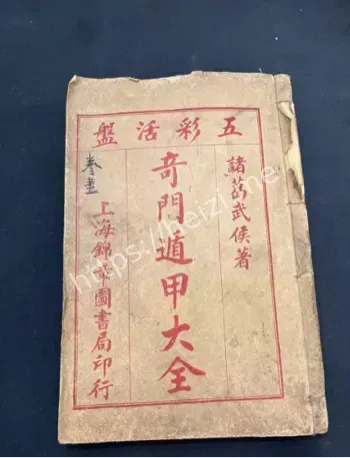 五彩活盤
諸葛武侯著
奇門遁甲大全
上海錦章圖書局印行
https://heizi.me